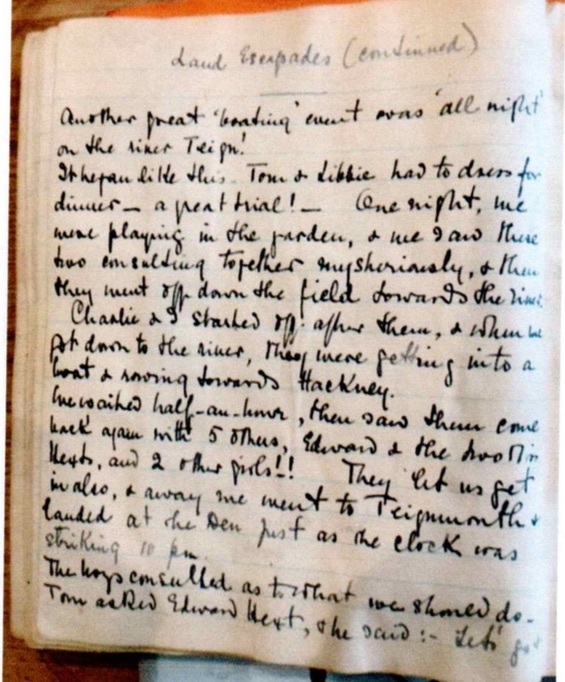 Land Escapades (continued)
Another great 'boating' event was 'all night'
on the river Teign!
It began like this. Tom & Libbie had to dress for
dinner — a great trial! — One night, we
were playing in the garden, & we saw these
two consulting together mysteriously, & then
they went off down the field towards the river.
Charlie & I started off after them, & when we
got down to the river, they were getting into a
boat & rowing towards Hackney.
We waited half-an-hour, then saw them come
back again with 5 others, Edward & the two Miss
Hexts, and 2 other girls!! They let us get
in also, & away we went to Teignmouth &
landed at the Den just as the clock was
striking 10 pm.
The boys consulted as to what we should do.
Tom asked Edward Hext, & he said :- Let's go